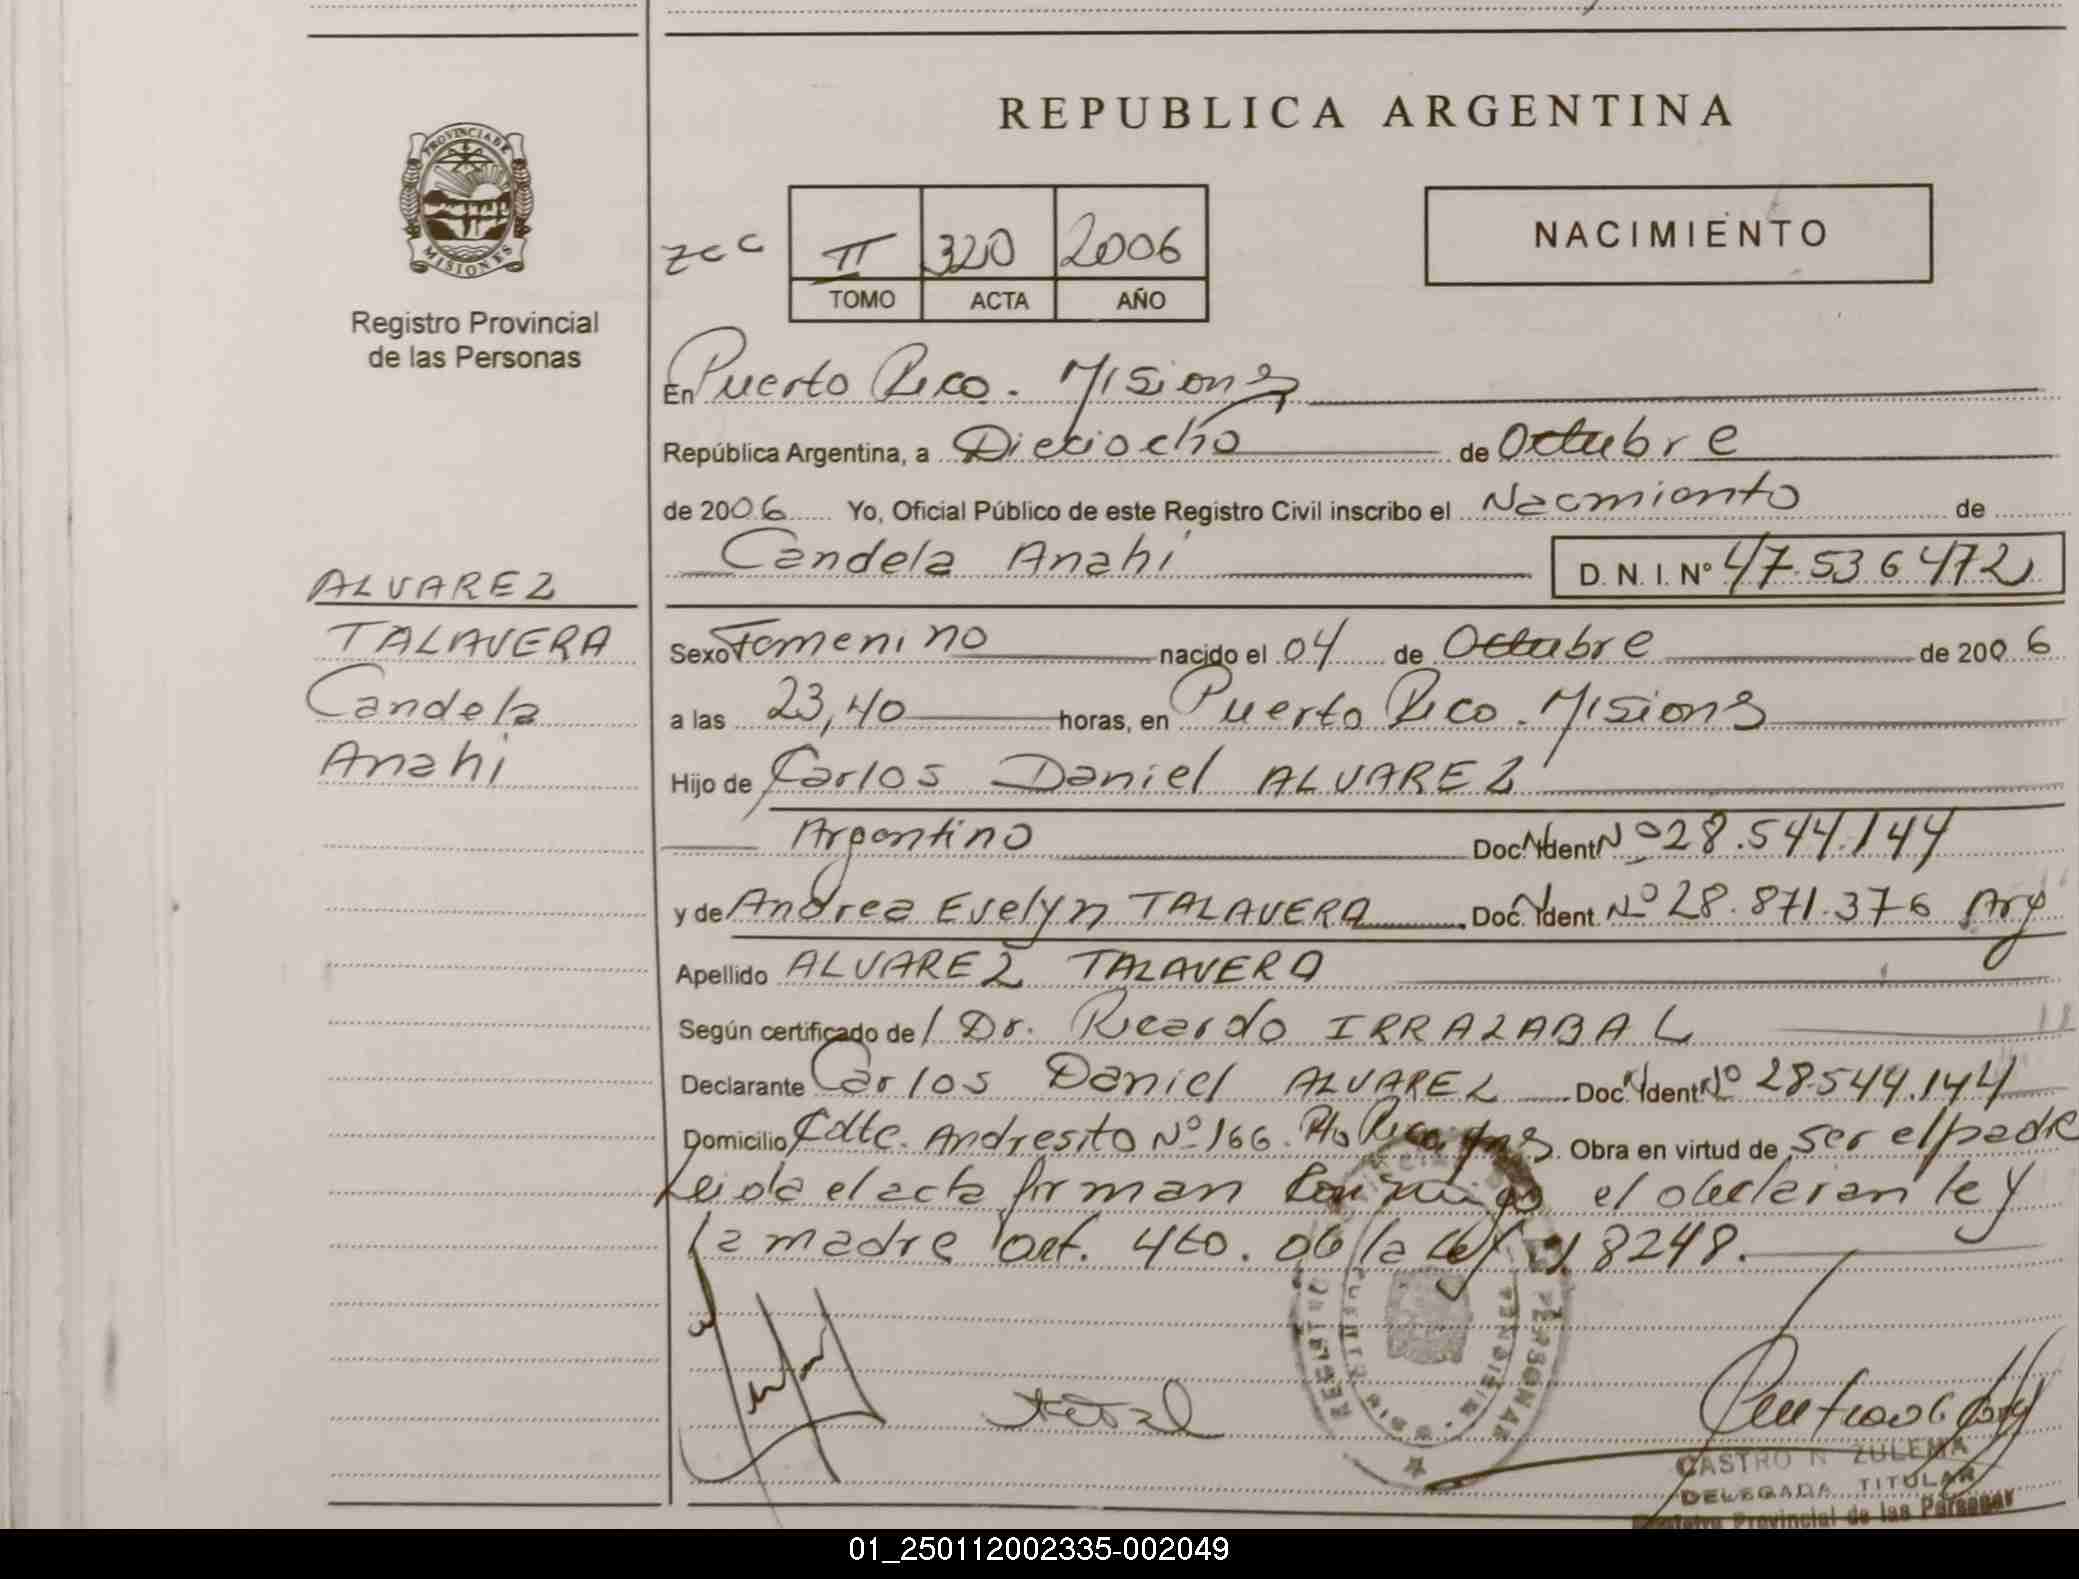 REPUBLICA ARGENTINA
PROVINCIA DE
MISIONES
Registro Provincial
de las Personas
zcc II 320 2006
TOMO ACTA AÑO
NACIMIENTO
En Puerto Rico. Misiones
República Argentina, a Dieciocho de Octubre
de 2006 Yo, Oficial Público de este Registro Civil inscribo el Nacimiento de
Candela Anahi D. N. I. Nº 47.536472
ALVAREZ
TALAVERA
Candela
Anahi
Sexo Femenino nacido el 04 de Octubre de 2006
a las 23,40 horas, en Puerto Rico. Misiones
Hijo de Carlos Daniel ALVAREZ
Argentino Doc. Ident Nº 28.544.144
y de Andrea Evelyn TALAVERA Doc. Ident. Nº 28.871.376 Arg
Apellido ALVAREZ TALAVERA
Según certificado de Dr. Ricardo IRRAZABAL
Declarante Carlos Daniel ALVAREZ Doc. Ident Nº 28.544.144
Domicilio Cdte. Andresito Nº 166. Pto Rico Mnes. Obra en virtud de ser el padre
Leida el acta firman conmigo el declarante y
la madre art. 4to. de la Ley 18248.
CASTRO N ZULEMA
DELEGADA TITULAR
Registro Provincial de las Personas
01_250112002335-002049